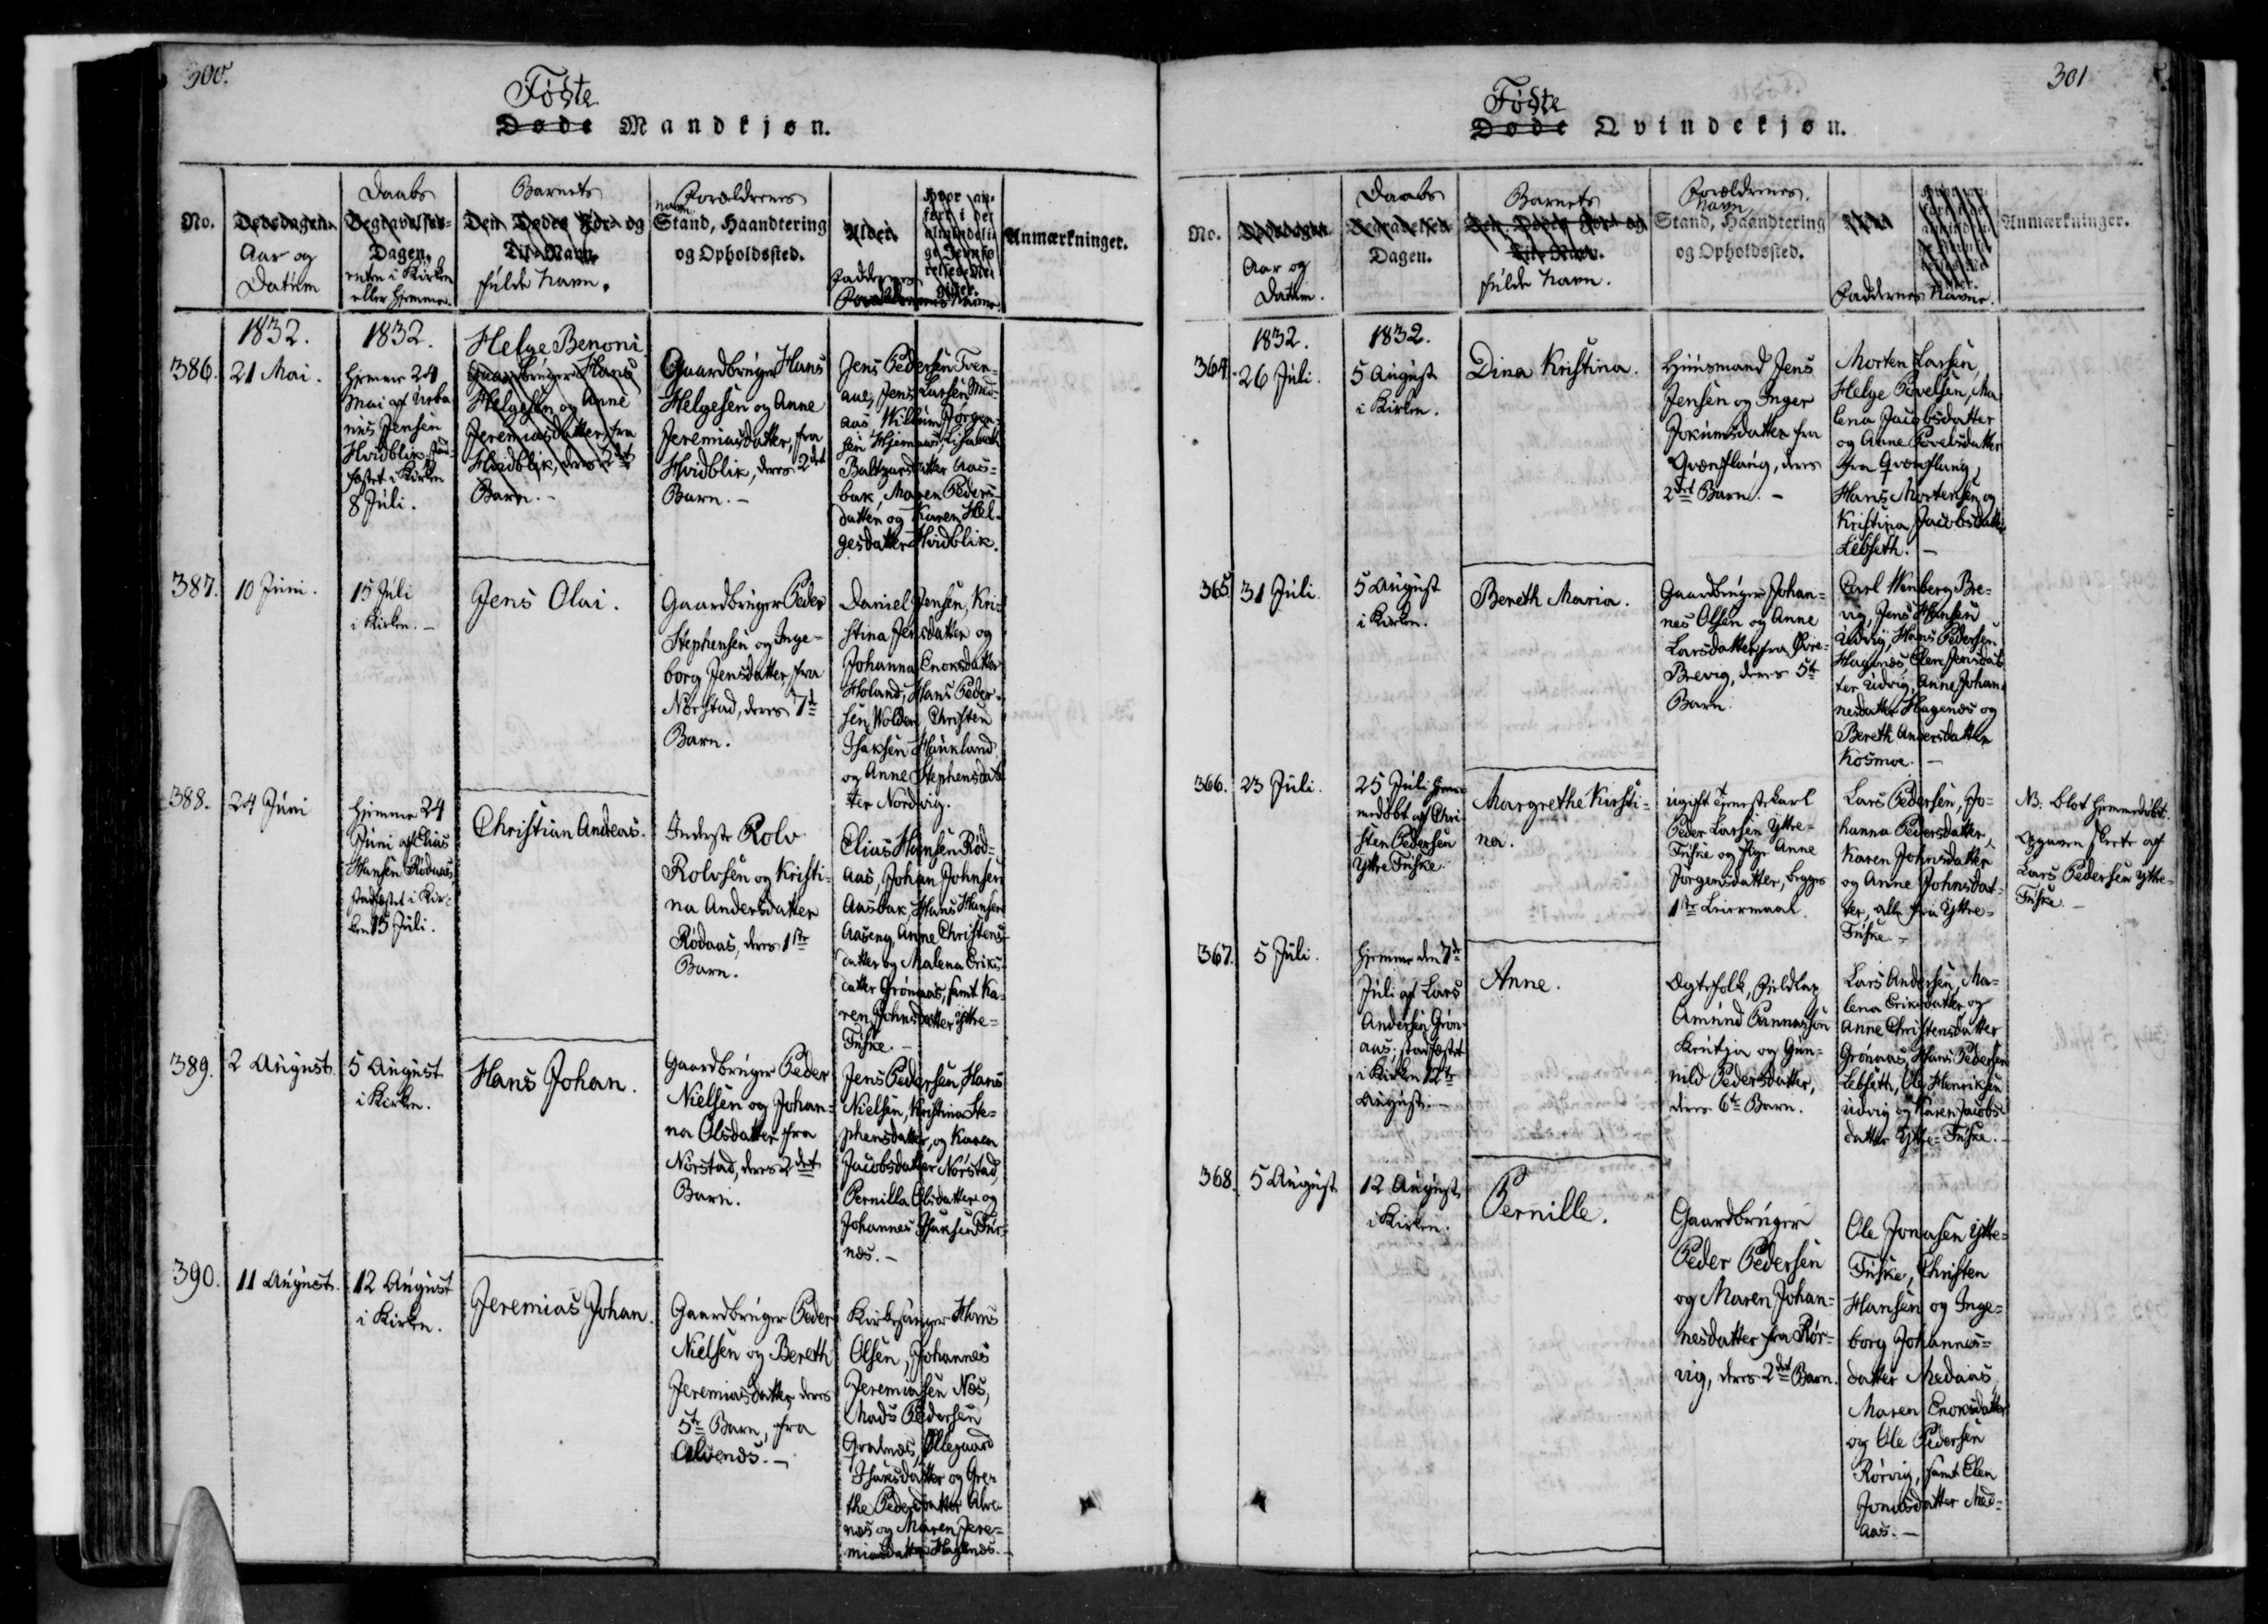 300.
Føste
Døde Mandkjøn.
No.
Dødsdagen.
Aar og
Datum
Daabs
Begravelses-
Dagen,
enten i Kirken
eller hjemme.
Barnets
Den Dødes For- og
Til-Navn.
fulde Navn.
Forældrenes
navn
Stand, Haandtering
og Opholdssted.
Alder.
Faddernes
Navne.
Anmærkninger.
1832.
1832.
386.
21 Mai.
Hjemme 24
Mai af Urba-
nus Jensen
Hvidblik, stad-
fæstet i Kirken
8 Juli.
Helge Benoni
Gaardbruger Hans
Helgesen og Anne
Jeremiasdatter, fra
Hvidblik, deres 2det
Barn.-
Gaardbruger Hans
Helgesen og Anne
Jeremiasdatter, fra
Hvidblik, deres 2det
Barn.-
Jens Pedersen Tven-
aae, Jens Larsen Med-
aas, Willum Jørgen-
sen Hjemaas, Lisabeth
Baltzarsdatter Aas-
bak, Maren Peders-
datter og Karen Hel-
gesdatter Hvidblik.
387.
10 Juni.
15 Juli
i Kirken.-
Jens Olai.
Gaardbruger Peder
Stephensen og Inge-
borg Jensdatter, fra
Nørstad, deres 7de
Barn.
Daniel Jensen, Kri-
stina Jensdatter og
Johanna Enoksdatter
Holand, Hans Peder-
sen Wolden, Christen
Isaksen Haukland
og Anne Stephensdat-
ter Nordvig.
388.
24 Juni
Hjemme 24
Juni af Elias
Hansen Rødaas,
stadfæstet i Kir-
ken 15 Juli.
Christian Andreas.
Inderste Rolv
Rolvsen og Kristi-
na Andersdatter
Rødaas, deres 1ste
Barn.
Elias Hansen Rød-
aas, Johan Johnsen
Aasbak, Hans Hansen
Aaseng, Anne Christens-
datter og Malena Eriks-
datter Grønaas, samt Ka-
ren Johnsdatter Yttre-
Fuske.-
389.
2 August.
5 August
i Kirken.
Hans Johan.
Gaardbruger Peder
Nielsen og Johan-
na Olsdatter fra
Nørstad, deres 2det
Barn.
Jens Pedersen, Hans
Nielsen, Kristina Ste-
phensdatter, og Karen
Jacobsdatter Nørstad,
Pernilla Olsdatter og
Johannes Isaksen Fur-
næs.-
390.
11 August.
12 August
i Kirken.
Jeremias Johan.
Gaardbruger Peder
Nielsen og Bereth
Jeremiasdatter, deres
5te Barn, fra
Alvenæs.-
Kirkesanger Hans
Olsen, Johannes
Jeremiasen Næs,
Mads Pedersen
Ollegaard
Isaksdatter og Gre-
the Pedersdatter Alve-
næs og Maren Jere-
miasdatter Hagenæs.-
301
Føste
Døde Qvindekjøn.
No.
Dødsdagen.
Aar og
Datum.
Daabs
Begravelses
Dagen.
Barnets
Den Dødes For- og
Til-Navn.
fulde Navn.
Forældrenes.
Navn
Stand, Haandtering
og Opholdssted.
Alder
Faddernes Navne.
Anmærkninger.
1832.
1832.
364.
26 Juli.
5 August
i Kirken.
Dina Kristina.
Huusmand Jens
Jensen og Inger
Jokumsdatter fra
Qvænflaug, deres
2det Barn.-
Morten Larsen,
Helge Povelsen, Ma-
lena Jacobsdatter
og Anne Povelsdatter
fra Qvænflaug,
Hans Mortensen og
Kristina Jacobsdatter
Lebseth.-
365.
31 Juli.
5 August
i Kirken.
Bereth Maria.
Gaardbruger Johan-
nes Olsen og Anne
Larsdatter fra Øvre-
Brevig, deres 5te
Barn.
Carl Wenberg Bre-
vig, Jens Hansen
Udvig, Hans Pedersen
Hagenæs Elen Jensdat-
ter Udvig, Anne Johan-
nesdatter Hagenæs og
Bereth Andersdatter
Kosmoe.-
366.
23 Juli.
25 Juli hjem-
medøbt af Chri-
sten Pedersen
Yttre Fuske.
Margrethe Kirsti-
na.
ugift Tjenestekarl
Peder Larsen Yttre-
Fuske og Pige Anne
Jørgensdatter, begges
1ste Leiermaal.
Lars Pedersen, Jo-
hanna Pedersdatter,
Karen Johnsdatter
og Anne Johnsdat-
ter, alle fra Yttre-
Fuske.-
NB: blot hjemmedøbt.
Opgaven skeete af
Lars Pedersen Yttre-
Fuske.-
367.
5 Juli.
Hjemme den 7de
Juli af Lars
Andersen Grøn-
aas; stadfæstet
i Kirken 12te
August.-
Anne.
Ægtefolk, Fjeldlap
Amund
Krutja og Gun-
nild Pedersdatter,
deres 6te Barn.
Lars Andersen, Ma-
lena Eriksdatter, og
Anne Christensdatter
Grønaas, Hans Pedersen
Lebseth, Ole Henriksen
Udvig og Karen Jacobs-
datter Yttre-Fuske.-
368.
5 August
12 August
i Kirken.
Pernille.
Gaardbruger
Peder Pedersen
og Maren Johan-
nesdatter fra Rør-
vig, deres 2det Barn.
Ole Jonasen Yttre-
Fuske, Christen
Hansen og Inge-
borg Johannes-
datter Medaas,
Maren Enoksdatter
og Ole Pedersen
Rørvig, samt Elen
Jonasdatter Med-
aas.-